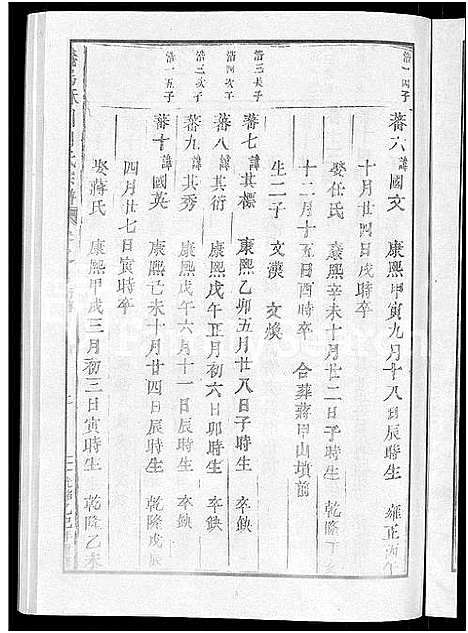 浩一四子
蕃六諱國文 康熙甲寅九月十八日辰時生 雍正
十月廿四日戌時卒
娶任氏 康熙辛未十月廿二日子時生 乾隆
十二月十五日酉時卒 合葬蔣甲山墳前
生二子 文漢 文煥
浩三長子
蕃七諱其標 康熙乙卯五月廿八日子時生 卒缺
浩四次子
蕃八諱其 康熙戊午正月初六日卯時生 卒缺
浩三次子
蕃九諱其秀 康熙戊午六月十一日辰時生 卒缺
浩一五子
蕃十諱國英 康熙己未十月廿四日辰時生 乾隆戊辰
四月廿七日寅時卒
娶蔣氏 康熙甲戌三月初三日寅時生 乾隆乙未